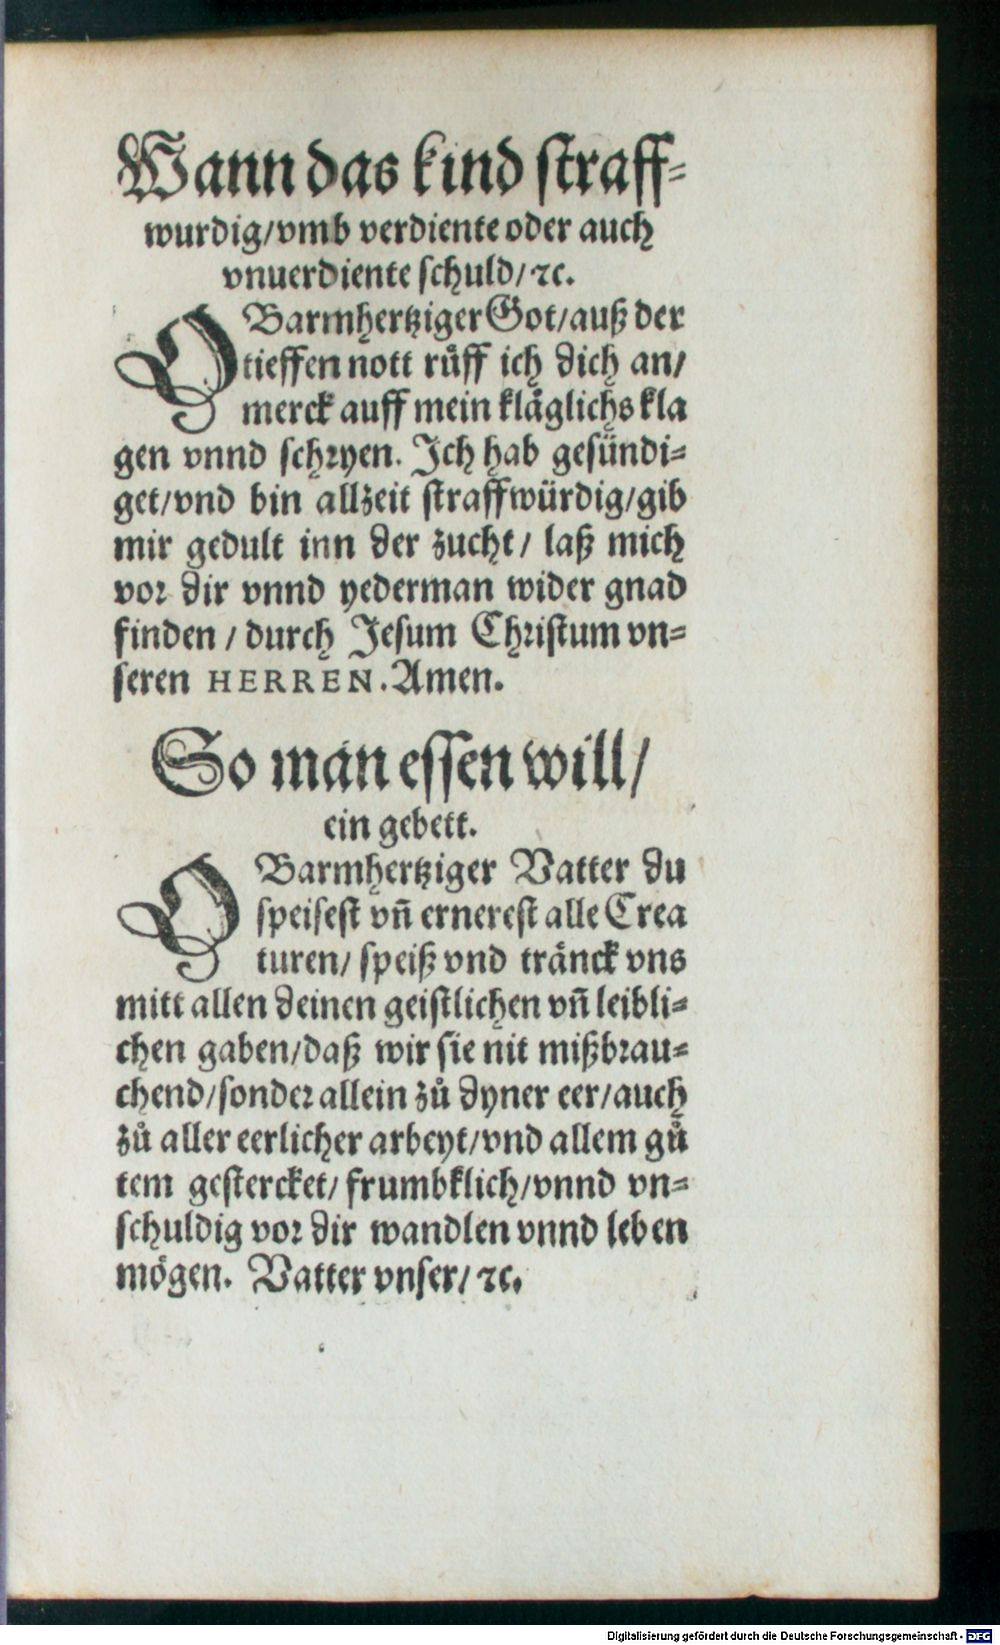 Wann das kind straff-
wurdig/vmb verdiente oder auch
vnuerdiente schuld/ ⁊c.
O Barmhertziger Got/auß der
tieffen nott růff ich dich an/
merck auff mein kläglichs kla
gen vnnd schꝛyen. Ich hab gesündi-
get/vnd bin allzeit straffwürdig/gib
mir gedult inn der zucht/ laß mich
voꝛ dir vnnd yederman wider gnad
finden / durch Jesum Chꝛistum vn-
seren HERREN. Amen.
So man essen will/
ein gebett.
O Barmhertziger Vatter du
speisest vñ ernerest alle Crea
turen/ speiß vnd tränck vns
mitt allen deinen geistlichen vñ leibli-
chen gaben/daß wir sie nit mißbꝛau-
chend/sondeꝛ allein zů dyner eer/auch
zů aller eerlicher arbeyt/vnd allem gů
tem gestercket/ frumbklich/vnnd vn-
schuldig voꝛ dir wandlen vnnd leben
mögen. Vatter vnser/ ⁊c.
Digitalisierung gefördert durch die Deutsche Forschungsgemeinschaft - DFG